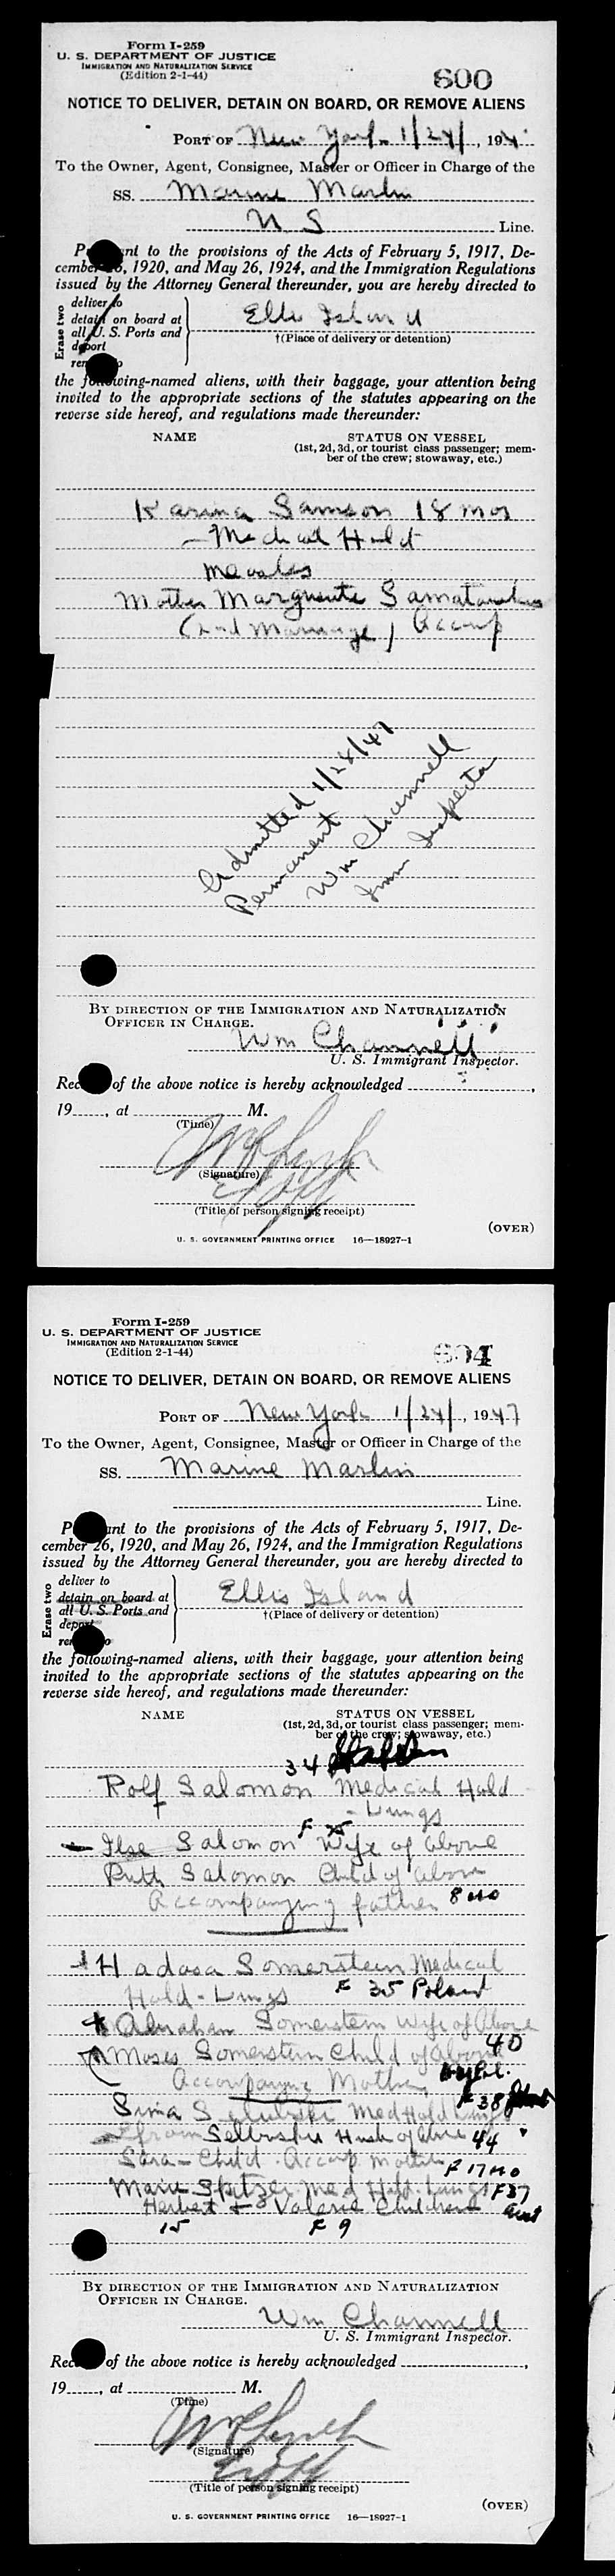 Form I-259
U. S. DEPARTMENT OF JUSTICE
IMMIGRATION AND NATURALIZATION SERVICE
(Edition 2-1-44)
600
NOTICE TO DELIVER, DETAIN ON BOARD, OR REMOVE ALIENS
PORT OF New York 1/24/, 194
To the Owner, Agent, Consignee, Master or Officer in Charge of the
SS. Marine Marlin
U S Line.
P nt to the provisions of the Acts of February 5, 1917, De-
cember 26, 1920, and May 26, 1924, and the Immigration Regulations
issued by the Attorney General thereunder, you are hereby directed to
Erase two
deliver to
detain on board at
all U. S. Ports and
deport
rem o
Ellis Island
†(Place of delivery or detention)
the following-named aliens, with their baggage, your attention being
invited to the appropriate sections of the statutes appearing on the
reverse side hereof, and regulations made thereunder:
NAME STATUS ON VESSEL
(1st, 2d, 3d, or tourist class passenger; mem-
ber of the crew; stowaway, etc.)
Karina Samson 18 mos
- Medical Hold
measles
Mother Marguerite
(2nd Marriage) Accomp
Admitted 1/28/47
Permanent
Wm Channell
Imm Inspector
BY DIRECTION OF THE IMMIGRATION AND NATURALIZATION
OFFICER IN CHARGE.
Wm Channell
U. S. Immigrant Inspector.
Rec of the above notice is hereby acknowledged ,
19 , at M.
(Time)
(Signature)
(Title of person signing receipt)
(OVER)
U. S. GOVERNMENT PRINTING OFFICE 16—18927-1
Form I-259
U. S. DEPARTMENT OF JUSTICE
IMMIGRATION AND NATURALIZATION SERVICE
(Edition 2-1-44)
604
NOTICE TO DELIVER, DETAIN ON BOARD, OR REMOVE ALIENS
PORT OF New York 1/24/, 1947
To the Owner, Agent, Consignee, Master or Officer in Charge of the
SS. Marine Marlin
Line.
P ant to the provisions of the Acts of February 5, 1917, De-
cember 26, 1920, and May 26, 1924, and the Immigration Regulations
issued by the Attorney General thereunder, you are hereby directed to
Erase two
deliver to
detain on board at
all U. S. Ports and
deport
rem o
Ellis Island
†(Place of delivery or detention)
the following-named aliens, with their baggage, your attention being
invited to the appropriate sections of the statutes appearing on the
reverse side hereof, and regulations made thereunder:
NAME STATUS ON VESSEL
(1st, 2d, 3d, or tourist class passenger; mem-
ber of the crew; stowaway, etc.)
34
Rolf Salomon Medical Hold
- Lungs
F 25
Ilse Salomon Wife of above
Ruth Salomon Child of above
Accompanying father 8 mo
Hadasa Somerstein Medical
Hold - Lungs F 35 Poland
Abraham Somerstein Wife of Above
40
Moses Somerstein Child of above
Accompanying Mother
F 38
Sima Med Hold Lungs
Husb of above 44
Sara - Child - Accomp mother
F 17 mo
Marie Spitzer Med Hold - Lungs F 37
Herbert + Valerie Children
15 F 9
BY DIRECTION OF THE IMMIGRATION AND NATURALIZATION
OFFICER IN CHARGE.
Wm Channell
U. S. Immigrant Inspector.
Rec of the above notice is hereby acknowledged ,
19 , at M.
(Time)
(Signature)
(Title of person signing receipt)
(OVER)
U. S. GOVERNMENT PRINTING OFFICE 16—18927-1